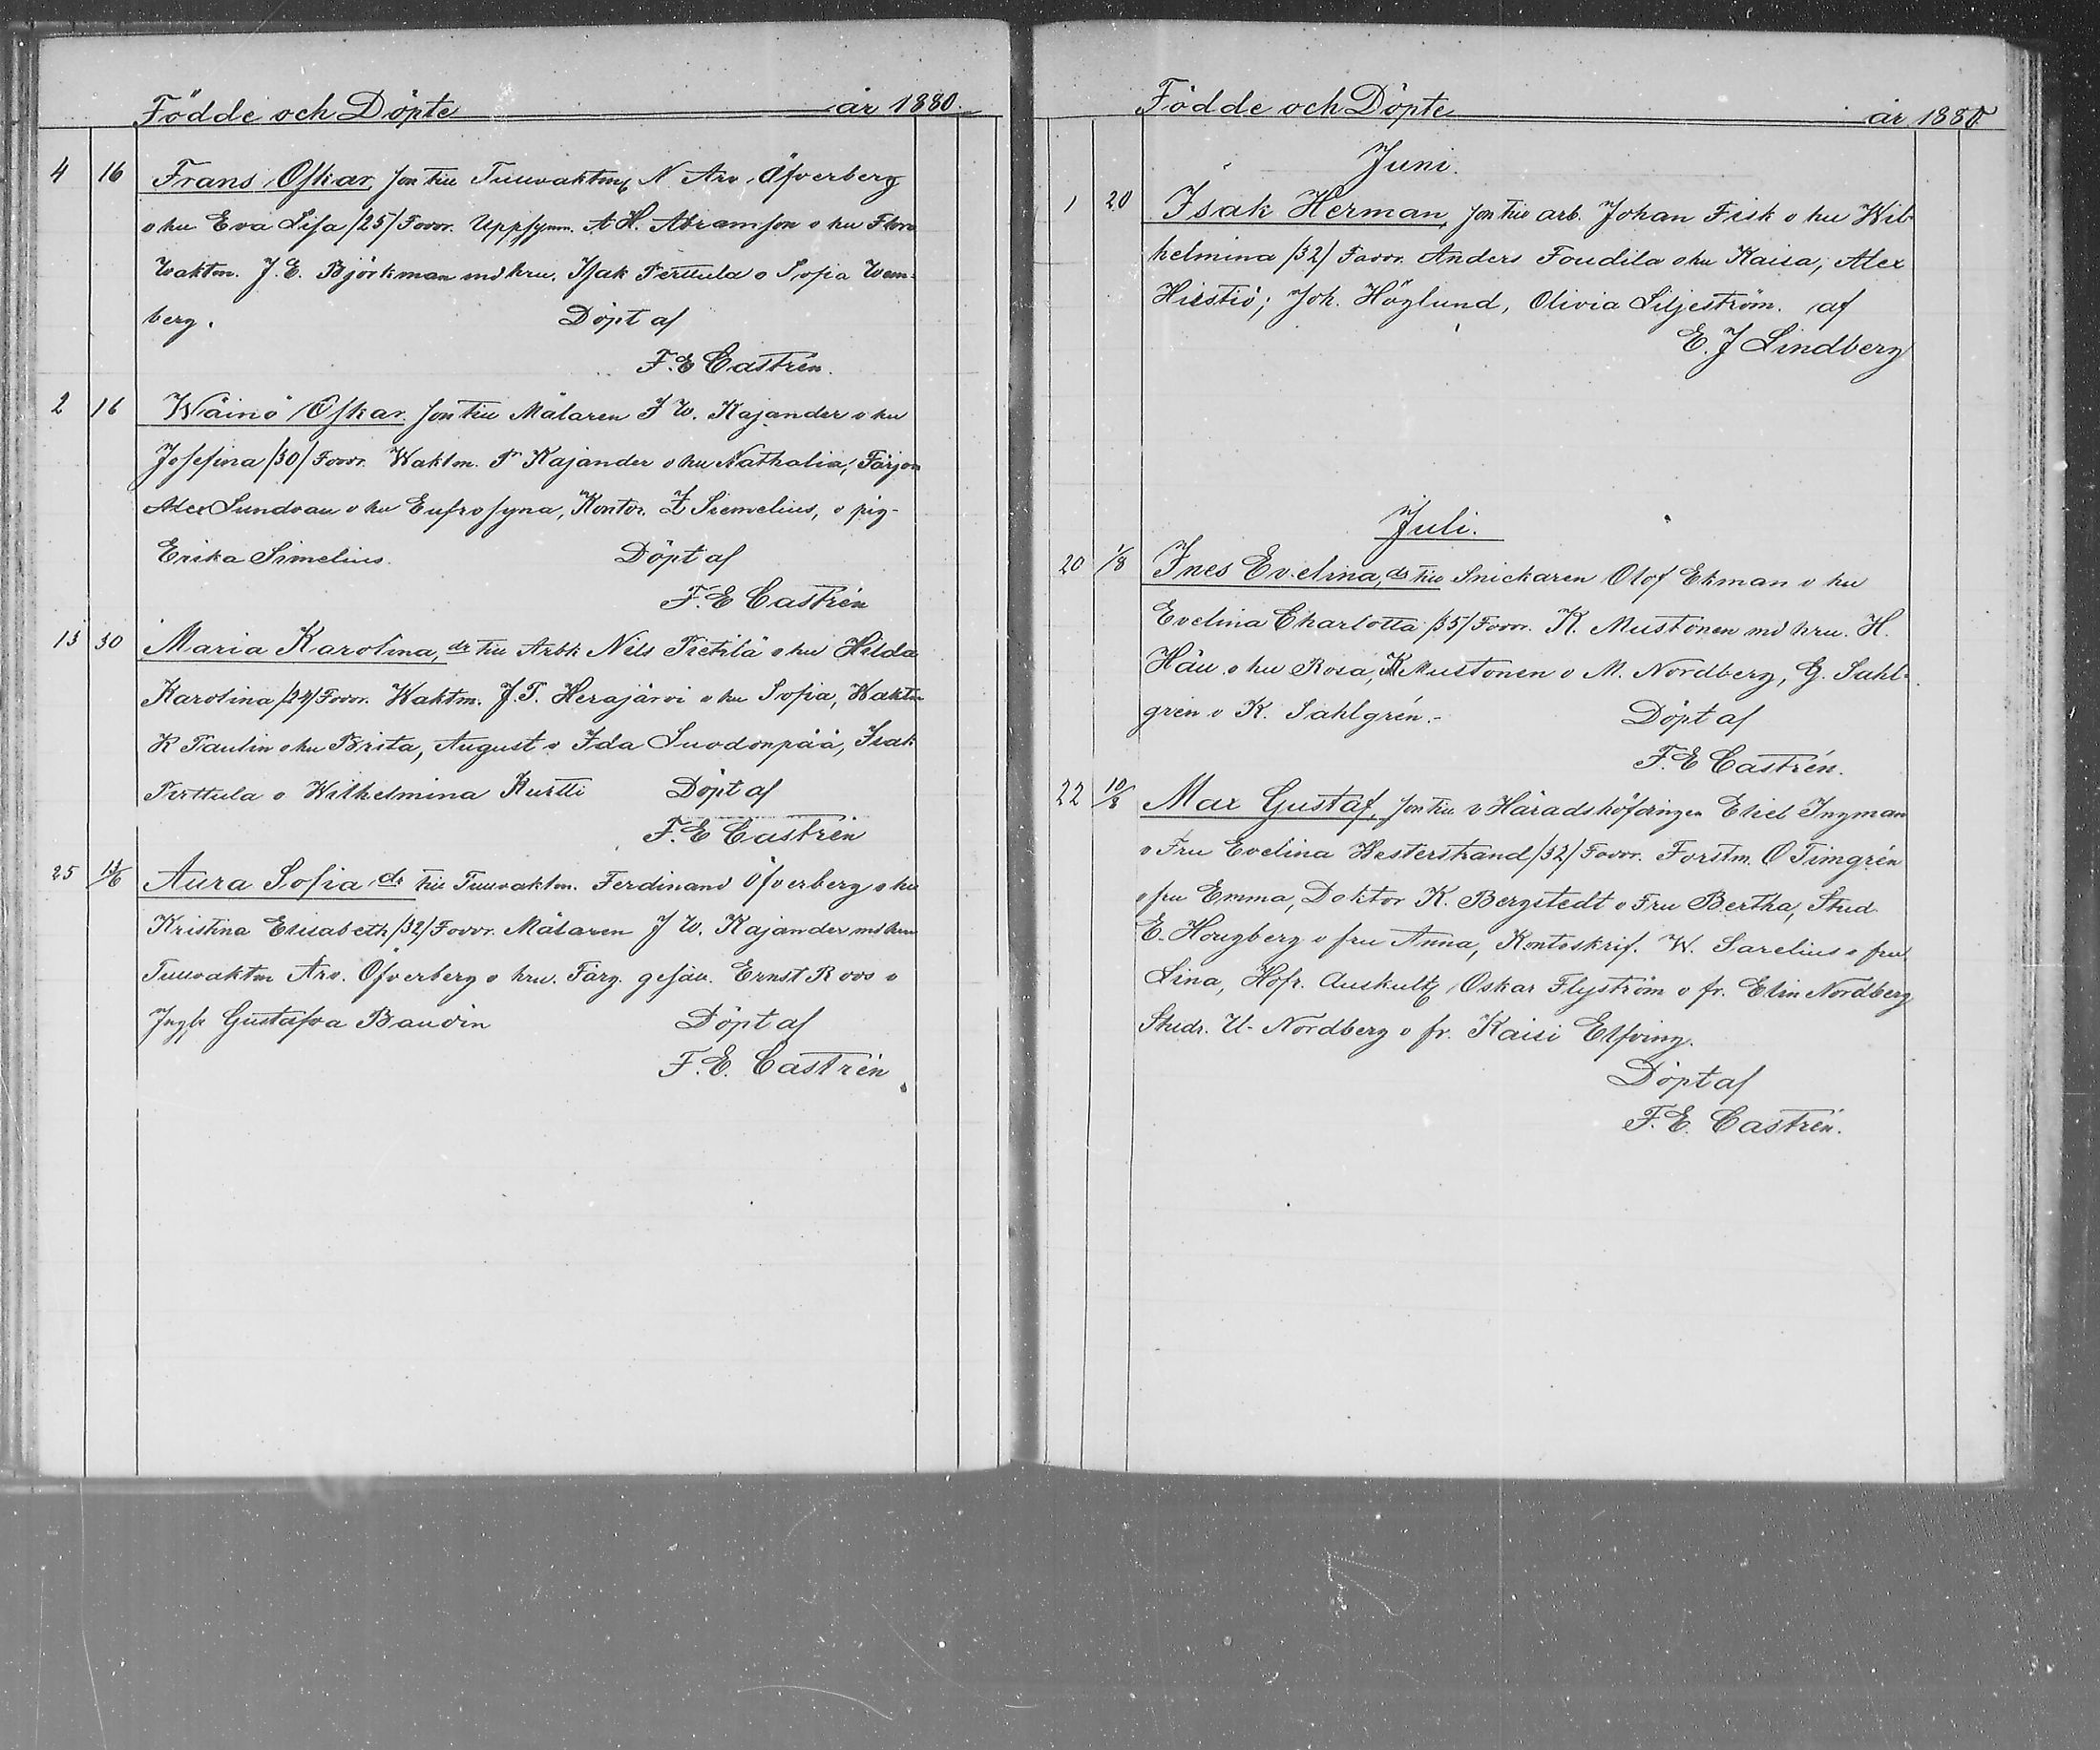 Födde och Döpte år 1880.
4 16 Frans Oskar, son till Tullvaktm N Arv. Öfverberg
o hu Eva Lisa /25/ Favor. Uppsynm. A H. Abramson o hu Flora
Waktm. J. E. Björkman md hru. Isak Perttula o Sofia Wem-
berg. Döpt af
F. E Castrén.
2 16 Wäinö Oskar son till Målaren J W. Kajander o hu
Josefina /30/ Favor. Waktm. P Kajander o hu Nathalia, Färjon
Alex Sundvau o hu Eufrosyna, Kontor. Z Siemelius, o pig-
Erika Simelius. Döpt af
F. E Castrén
13 30 Maria Karolina, dr till Arbk Nils Pietilä o hu Hilda
Karolina /24/ Favor. Waktm. J. P. Herajärvi o hu Sofia, Waktm
K Paulin o hu Brita, August o Ida Suvdonpää, Isak
Perttula o Wilhelmina Kurtti Döpt af
F. E Castrén
25 13/6 Aura Sofia dr till Tullvaktm. Ferdinand Öfverberg o hu
Kristina Elisabeth /32/ Favor. Målaren J W. Kajander md hru
Tullvaktm Arv. Öfverberg o hru. Färg. gesäll. Ernst Roos o
Jngfr Gustafva Baudin Döpt af
F. E. Castrén
Födde och Döpte år 1880
Juni.
1 20 Isak Herman, son till arb. Johan Fisk o hu Wil-
helmina /32/ Favor. Anders Foudila o hu Kaisa, Alex
Hiestiö; Joh. Höglund, Olivia Siljeström. af
E. J Lindberg
Juli.
20 1/8 Ines Evelina, dr till Snickaren Olof Ekman o hu
Evelina Charlotta /35/ Favor. K. Mustonen md hru. H.
Häll o hu Rosa, K Mustonen o M. Nordberg, G. Sahl-
gren o K. Sahlgrén.- Döpt af
F. E Castrén.
22 10/8 Max Gustaf, son till v Häradshöfdingen Eliel Ingman
o Fru Evelina Westerstrand /32/ Favor. Forstm. O Timgrén
o fru Emma, Doktor K. Bergstedt o Fru Bertha, Stud
E. Hougberg o fru Anna, Kontoskrif. W. Sarelius o fru
Lina, Hofr. Auskult Oskar Flyström o fr. Elin Nordberg
Studr. U. Nordberg o fr. Kaisi Elfving.
Döpt af
F. E. Castrén.